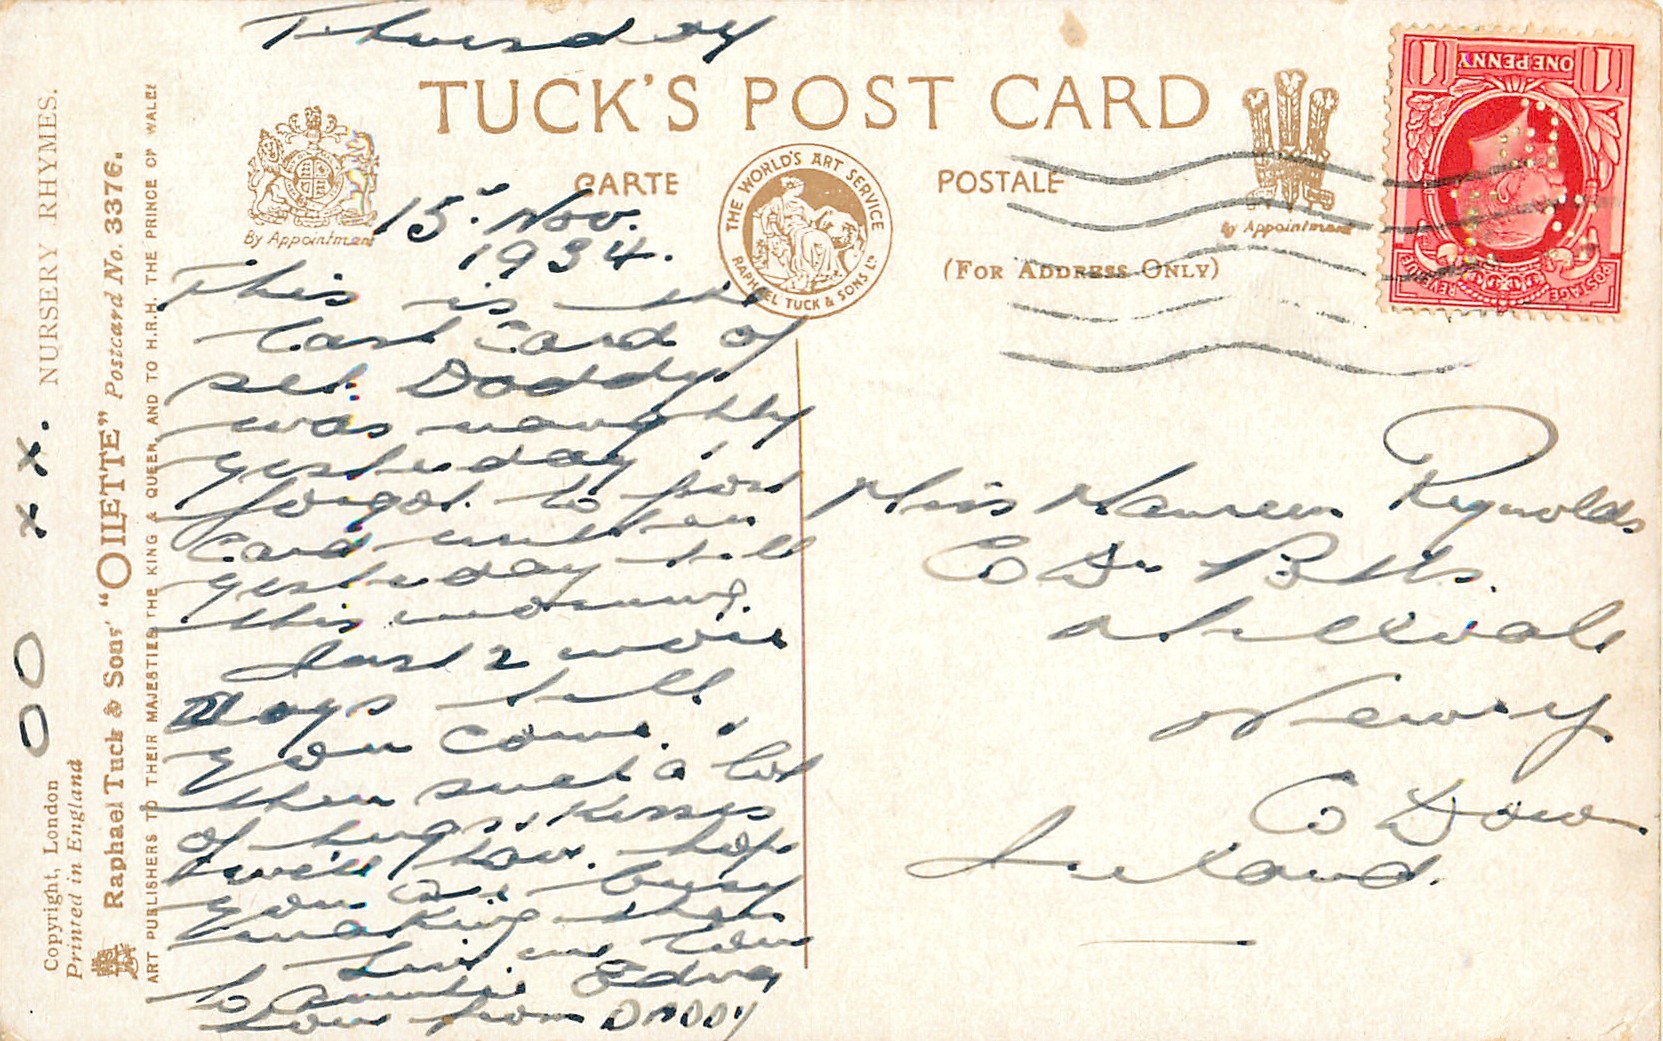 Thursday
TUCK'S POST CARD
CARTE POSTALE
By Appointment
THE WORLD'S ART SERVICE
RAPHAEL TUCK & SONS LD
By Appointment
(FOR ADDRESS ONLY)
ONE PENNY
1 1
POSTAGE REVENUE
15. Nov.
1934.
This is the
last Card of
set. Daddy
was naughty
yesterday
forgot to post
Card written
yesterday till
this morning.
Just 2 more
Days till
you come.
then such a lot
of hugs & kisses
we'll have. hope
you are busy
making them
Give my love
to Auntie Edna
Love from DADDY
Miss Maureen Reynolds
Co Dr Betts.
Newry
Co Down
Ireland.
NURSERY RHYMES.
x x.
O O
Copyright, London
Printed in England
Raphael Tuck & Sons' "OILETTE" Postcard No. 3376.
ART PUBLISHERS TO THEIR MAJESTIES THE KING & QUEEN AND TO H.R.H. THE PRINCE OF WALES